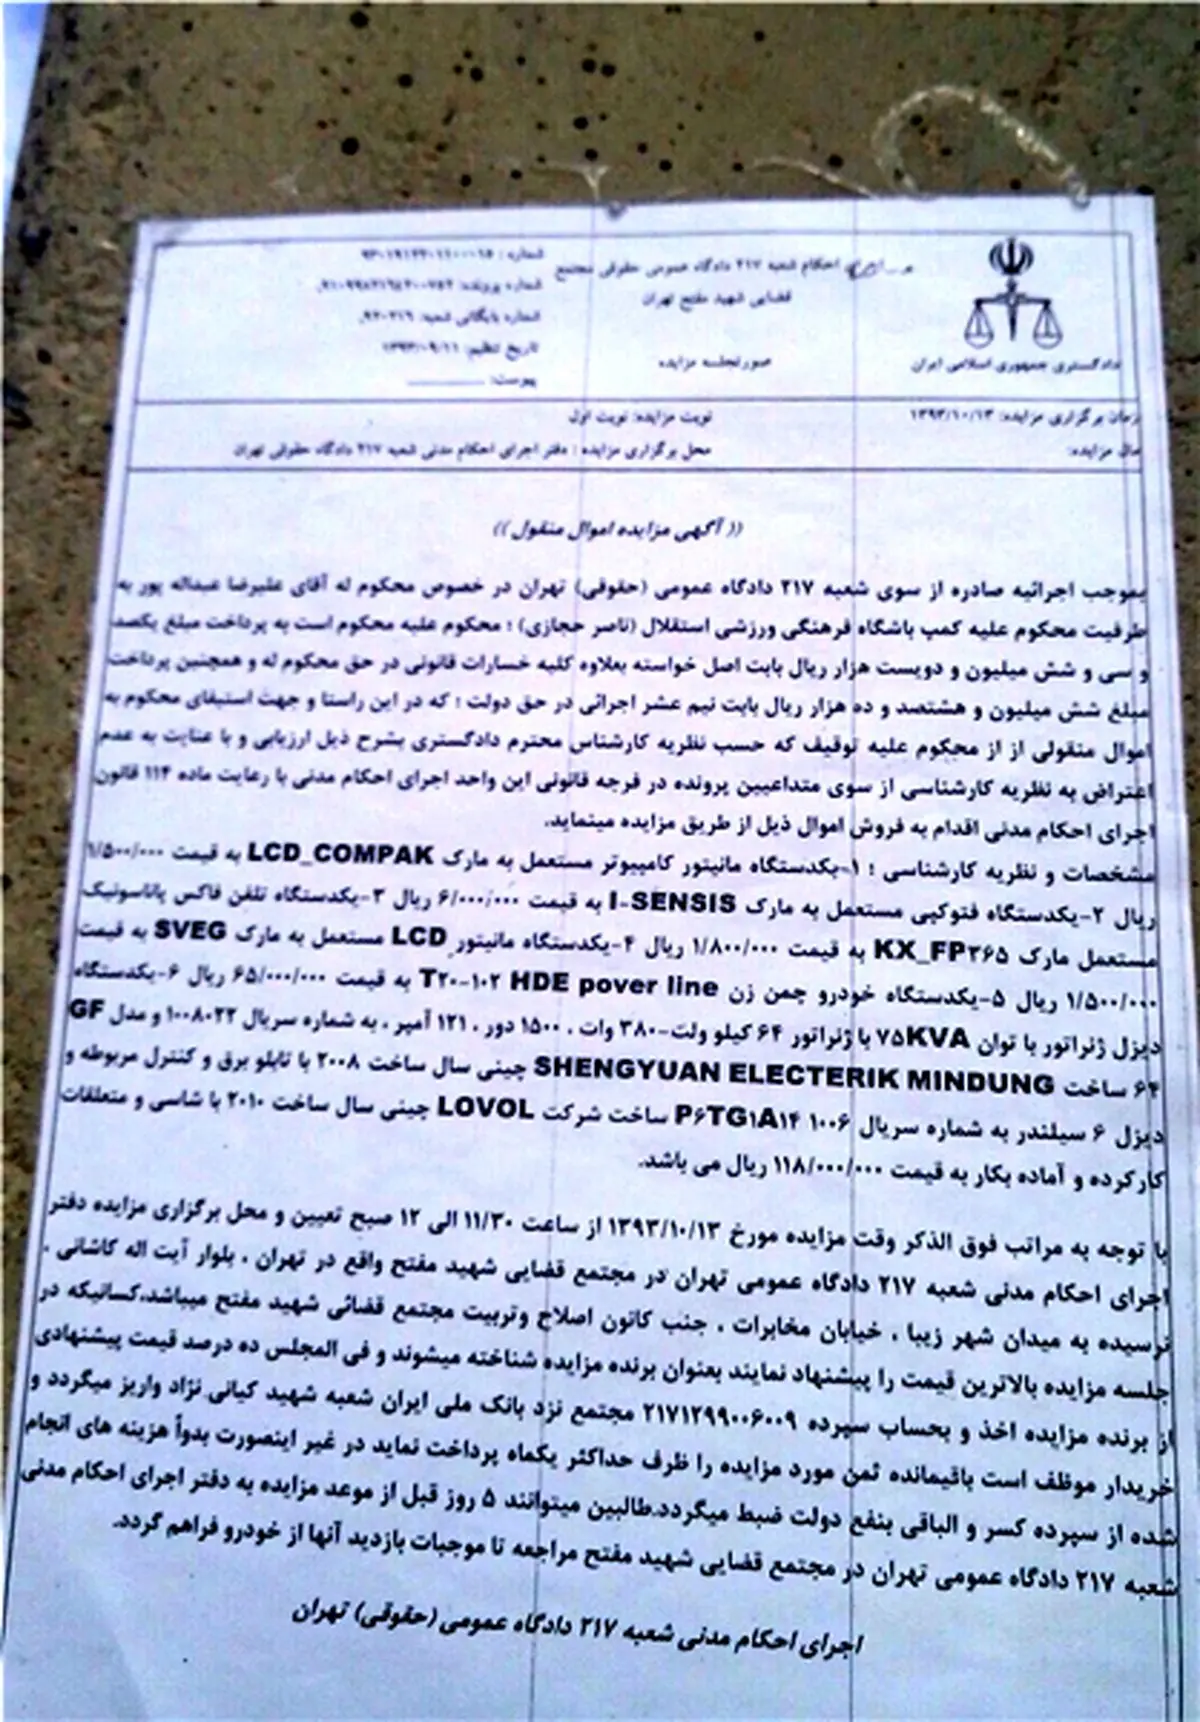 اجرای احکام شعبه ۲۱۷ دادگاه عمومی حقوقی مجتمع
قضایی شهید مفتح تهران
صورتجلسه مزایده
شماره :
شماره پرونده:
شماره بایگانی شعبه: ۹۳۰۳۱۶
تاریخ تنظیم: ۱۳۹۳/۰۹/۱۱
پیوست:
دادگستری جمهوری اسلامی ایران
زمان برگزاری مزایده: ۱۳۹۳/۱۰/۱۳
نوبت مزایده: نوبت اول
مال مزایده:
محل برگزاری مزایده : دفتر اجرای احکام مدنی شعبه ۲۱۷ دادگاه حقوقی تهران
(( آگهی مزایده اموال منقول ))
بموجب اجرائیه صادره از سوی شعبه ۲۱۷ دادگاه عمومی (حقوقی) تهران در خصوص محکوم له آقای علیرضا عبداله پور به
طرفیت محکوم علیه کمپ باشگاه فرهنگی ورزشی استقلال (ناصر حجازی) ؛ محکوم علیه محکوم است به پرداخت مبلغ یکصد
و سی و شش میلیون و دویست هزار ریال بابت اصل خواسته بعلاوه کلیه خسارات قانونی در حق محکوم له و همچنین پرداخت
مبلغ شش میلیون و هشتصد و ده هزار ریال بابت نیم عشر اجرائی در حق دولت ؛ که در این راستا و جهت استیفای محکوم به
اموال منقولی از از محکوم علیه توقیف که حسب نظریه کارشناس محترم دادگستری بشرح ذیل ارزیابی و با عنایت به عدم
اعتراض به نظریه کارشناسی از سوی متداعیین پرونده در فرجه قانونی این واحد اجرای احکام مدنی با رعایت ماده ۱۱۴ قانون
اجرای احکام مدنی اقدام به فروش اموال ذیل از طریق مزایده مینماید.
مشخصات و نظریه کارشناسی : ۱-یکدستگاه مانیتور کامپیوتر مستعمل به مارک LCD_COMPAK به قیمت ۱/۵۰۰/۰۰۰
ریال ۲-یکدستگاه فتوکپی مستعمل به مارک I-SENSIS به قیمت ۶/۰۰۰/۰۰۰ ریال ۳-یکدستگاه تلفن فاکس پاناسونیک
مستعمل مارک KX_FP۳۶۵ به قیمت ۱/۸۰۰/۰۰۰ ریال ۴-یکدستگاه مانیتور LCD مستعمل به مارک SVEG به قیمت
۱/۵۰۰/۰۰۰ ریال ۵-یکدستگاه خودرو چمن زن T۲۰-۱۰۲ HDE pover line به قیمت ۶۵/۰۰۰/۰۰۰ ریال ۶-یکدستگاه
دیزل ژنراتور با توان ۷۵KVA با ژنراتور ۶۴ کیلو ولت-۳۸۰ وات ، ۱۵۰۰ دور ، ۱۲۱ آمپر ، به شماره سریال ۱۰۰۸۰۲۲ و مدل GF
۶۴ ساخت SHENGYUAN ELECTERIK MINDUNG چینی سال ساخت ۲۰۰۸ با تابلو برق و کنترل مربوطه و
دیزل ۶ سیلندر به شماره سریال P۶TG۱A۱۴ ۱۰۰۶ ساخت شرکت LOVOL چینی سال ساخت ۲۰۱۰ با شاسی و متعلقات
کارکرده و آماده بکار به قیمت ۱۱۸/۰۰۰/۰۰۰ ریال می باشد.
با توجه به مراتب فوق الذکر وقت مزایده مورخ ۱۳۹۳/۱۰/۱۳ از ساعت ۱۱/۳۰ الی ۱۲ صبح تعیین و محل برگزاری مزایده دفتر
اجرای احکام مدنی شعبه ۲۱۷ دادگاه عمومی تهران در مجتمع قضایی شهید مفتح واقع در تهران ، بلوار آیت اله کاشانی ،
نرسیده به میدان شهر زیبا ، خیابان مخابرات ، جنب کانون اصلاح وتربیت مجتمع قضائی شهید مفتح میباشد.کسانیکه در
جلسه مزایده بالاترین قیمت را پیشنهاد نمایند بعنوان برنده مزایده شناخته میشوند و فی المجلس ده درصد قیمت پیشنهادی
از برنده مزایده اخذ و بحساب سپرده ۲۱۷۱۲۹۹۰۰۶۰۰۹ مجتمع نزد بانک ملی ایران شعبه شهید کیانی نژاد واریز میگردد و
خریدار موظف است باقیمانده ثمن مورد مزایده را ظرف حداکثر یکماه پرداخت نماید در غیر اینصورت بدوأ هزینه های انجام
شده از سپرده کسر و الباقی بنفع دولت ضبط میگردد.طالبین میتوانند ۵ روز قبل از موعد مزایده به دفتر اجرای احکام مدنی
شعبه ۲۱۷ دادگاه عمومی تهران در مجتمع قضایی شهید مفتح مراجعه تا موجبات بازدید آنها از خودرو فراهم گردد.
اجرای احکام مدنی شعبه ۲۱۷ دادگاه عمومی (حقوقی) تهران